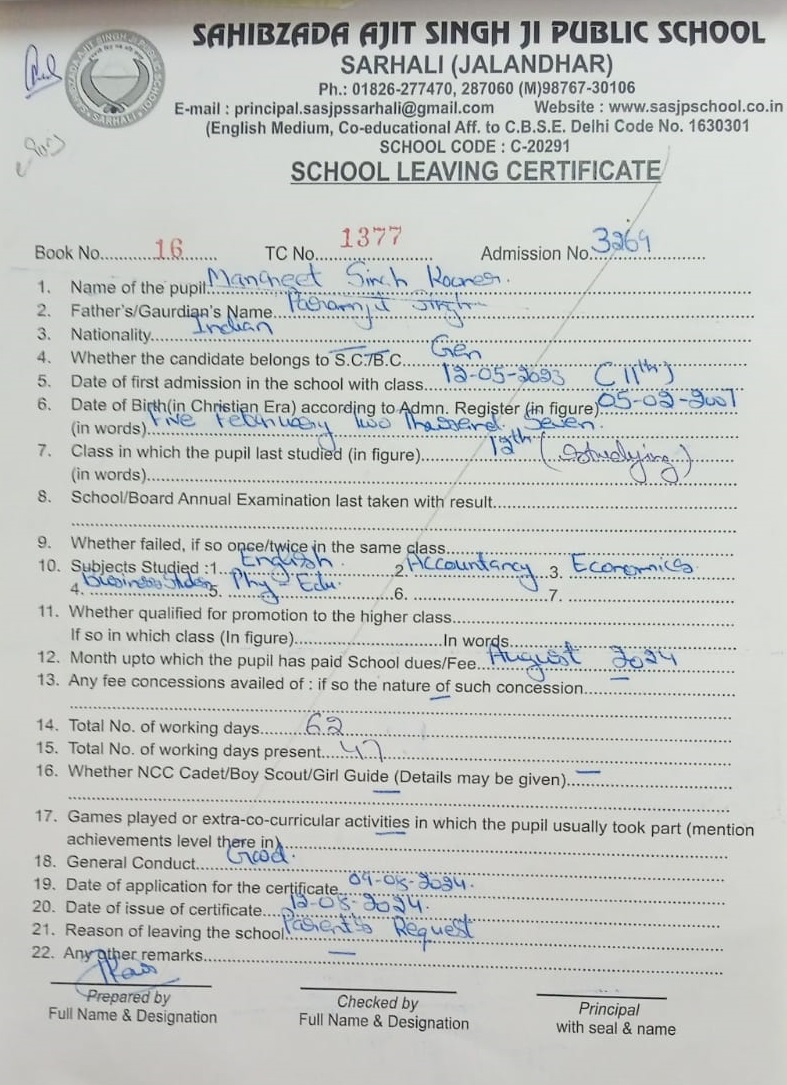 SAHIBZADA AJIT SINGH JI PUBLIC SCHOOL
SARHALI (JALANDHAR)
Ph.: 01826-277470, 287060 (M)98767-30106
E-mail : principal.sasjpssarhali@gmail.com Website : www.sasjpschool.co.in
(English Medium, Co-educational Aff. to C.B.S.E. Delhi Code No. 1630301
SCHOOL CODE : C-20291
SCHOOL LEAVING CERTIFICATE
Book No. 16 TC No. 1377 Admission No. 3269
1. Name of the pupil. Mangeet Singh Kooner.
2. Father's/Gaurdian's Name Paramjit Singh
3. Nationality Indian
4. Whether the candidate belongs to S.C./B.C. Gen
5. Date of first admission in the school with class 12-05-2023 C 11th)
6. Date of Birth(in Christian Era) according to Admn. Register (in figure) 05-02-2007
(in words) Five February Two Thousand Seven.
7. Class in which the pupil last studied (in figure) 12th (Studying)
(in words)
8. School/Board Annual Examination last taken with result
9. Whether failed, if so once/twice in the same class
10. Subjects Studied :1. English 2 Accountancy 3. Economics
4. Business Studies 5. Phy - Edu. 6. 7.
11. Whether qualified for promotion to the higher class
If so in which class (In figure) In words
12. Month upto which the pupil has paid School dues/Fee August 2024
13. Any fee concessions availed of : if so the nature of such concession
14. Total No. of working days 62
15. Total No. of working days present 47
16. Whether NCC Cadet/Boy Scout/Girl Guide (Details may be given) —
17. Games played or extra-co-curricular activities in which the pupil usually took part (mention
achievements level there in)
18. General Conduct Good.
19. Date of application for the certificate 09-08-2024.
20. Date of issue of certificate 12-08-2024.
21. Reason of leaving the school Parent's Request
22. Any other remarks —
Prepared by Checked by Principal
Full Name & Designation Full Name & Designation with seal & name